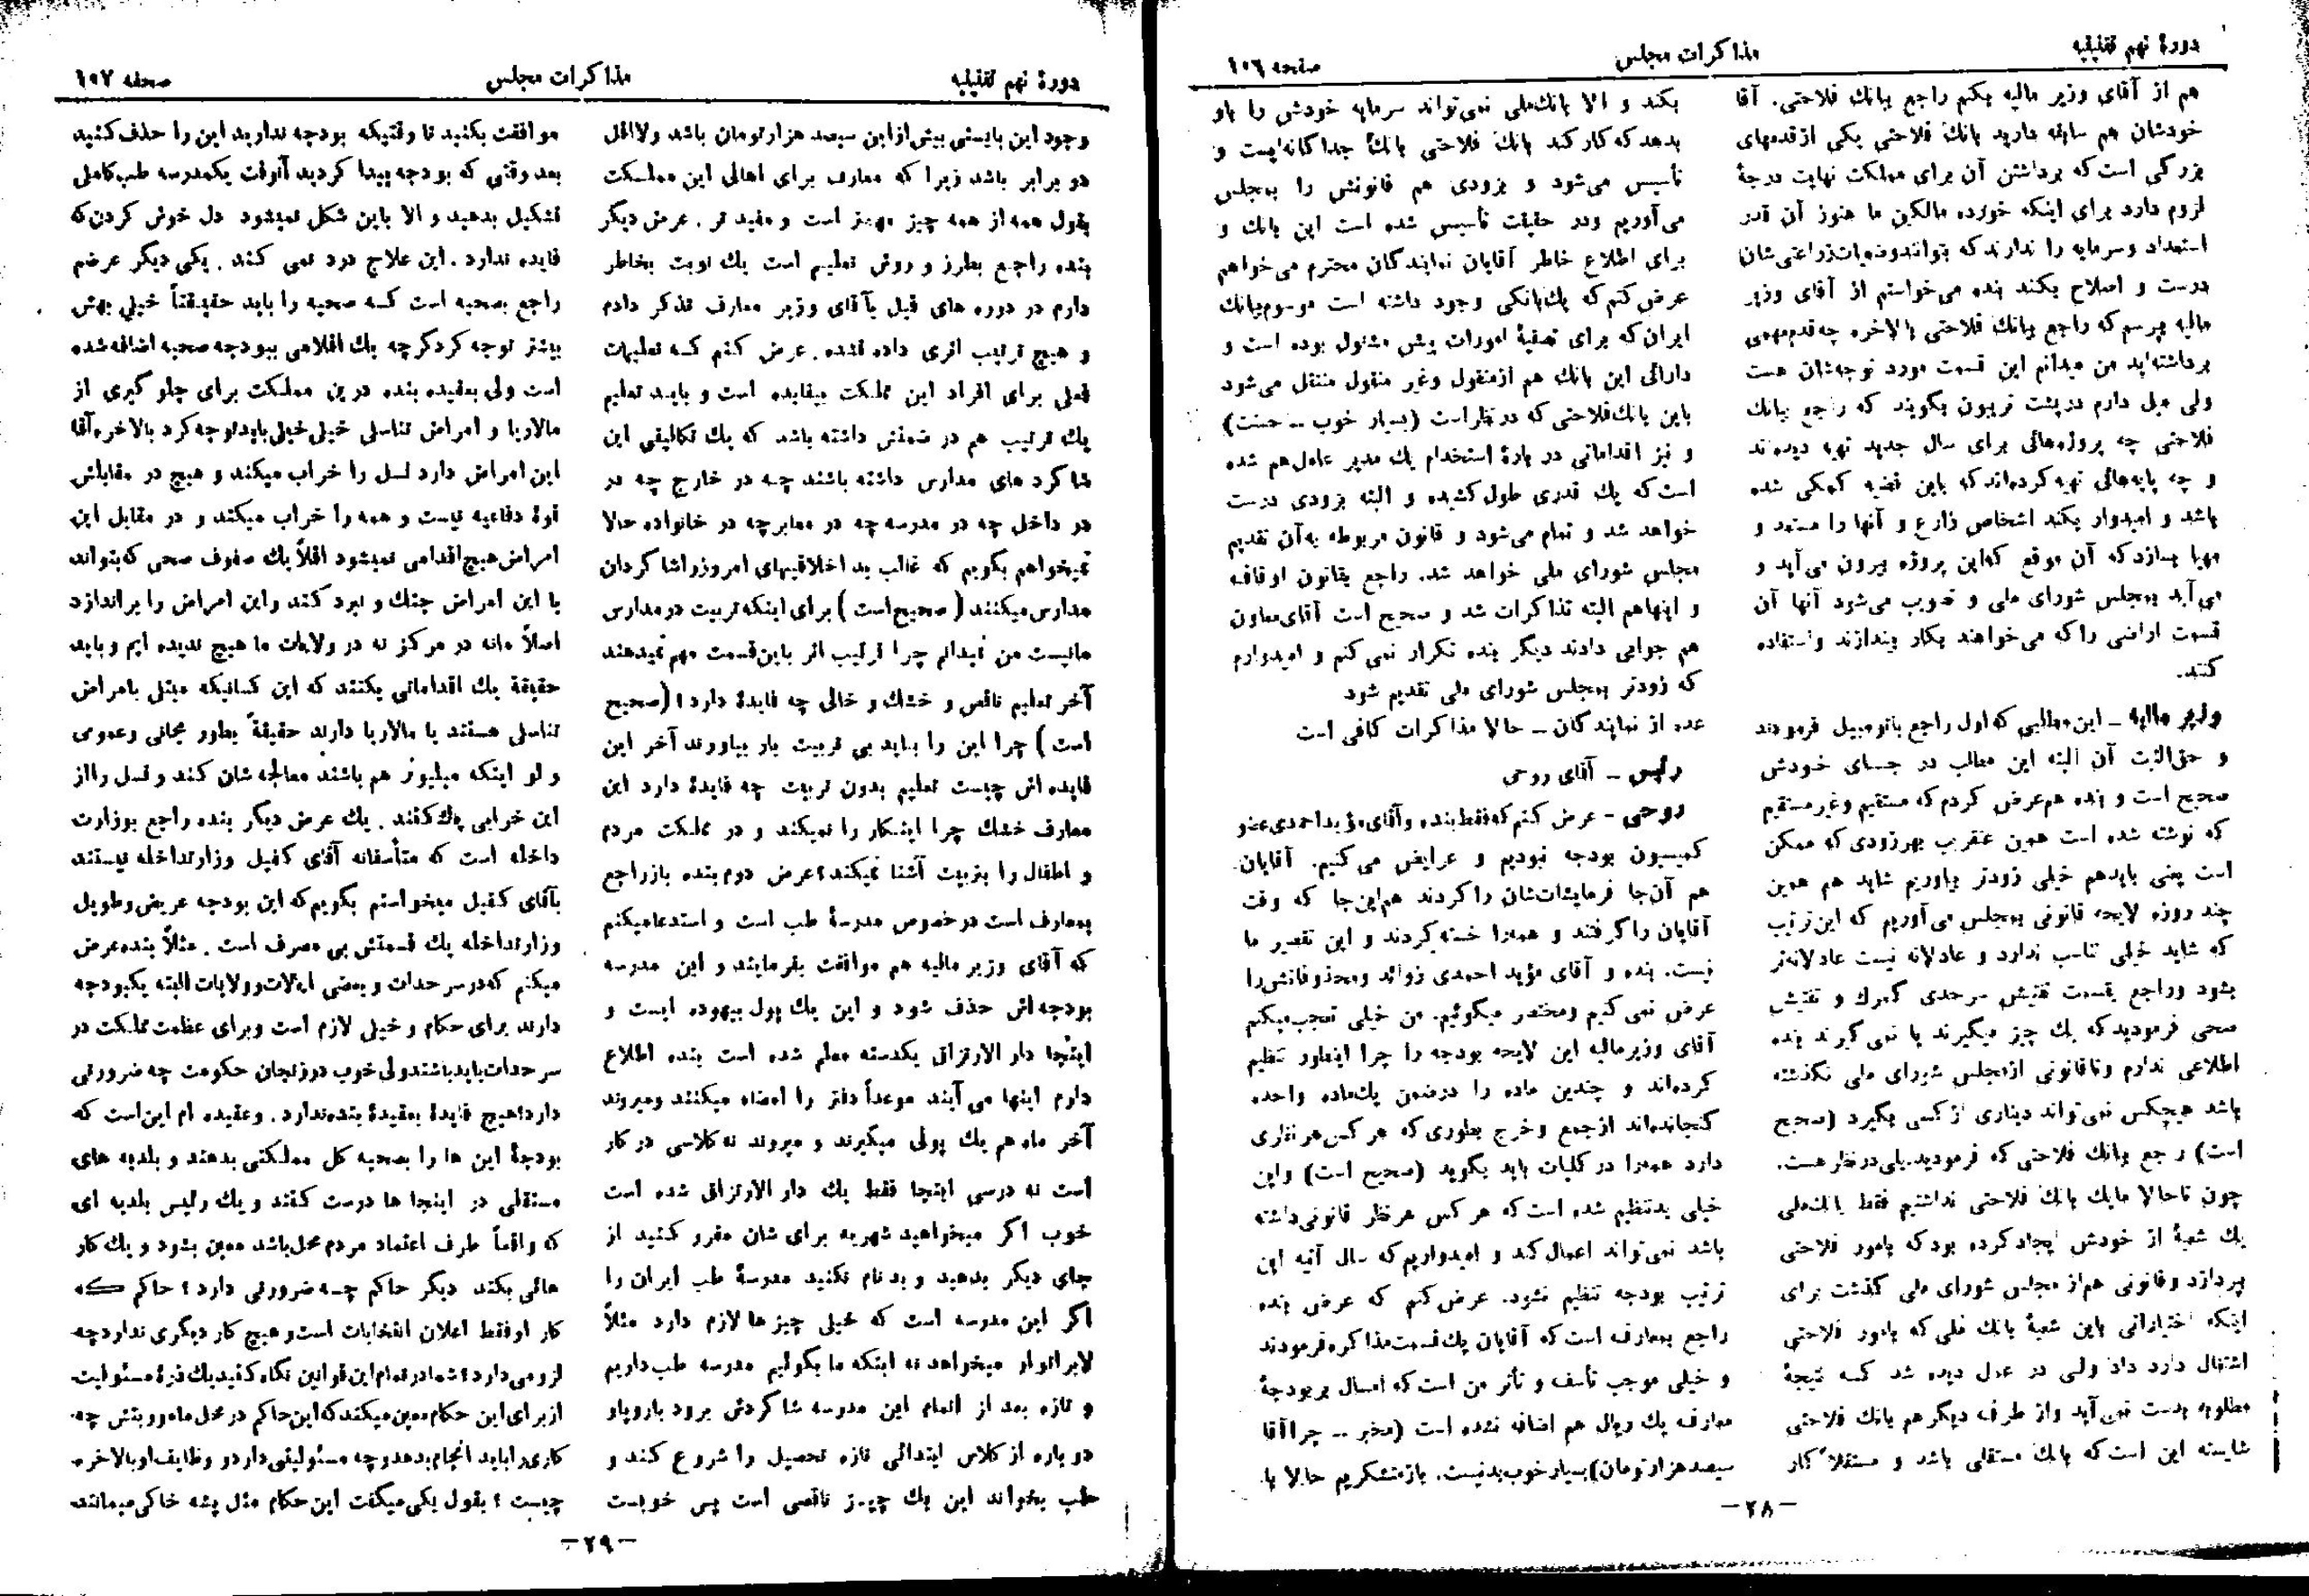 دورهٔ نهم تقنینیه
مذاکرات مجلس
صفحه ۱۰۶
هم از آقای وزیر مالیه بکنم راجع ببانك فلاحتی. آقا
خودشان هم سابقه دارید بانك فلاحتی یکی ازقدمهای
بزرگی است که برداشتن آن برای مملکت نهایت درجهٔ
لزوم دارد برای اینکه خورده مالکین ما هنوز آن قدر
استعداد وسرمایه را ندارند که بتوانند وضعیات زراعتی‌شان
درست و اصلاح بکنند بنده می‌خواستم از آقای وزیر
مالیه بپرسم که راجع ببانك فلاحتی بالاخره چه قدم مهمی
برداشته‌اید من میدانم این قسمت مورد توجه‌شان هست
ولی میل دارم درپشت تریبون بگویند که راجع ببانك
فلاحتی چه پروژه‌هائی برای سال جدید تهیه دیده‌اند
و چه پایه‌هائی تهیه کرده‌اند که باین قضیه کمکی شده
باشد و امیدوار بکند اشخاص زارع و آنها را مستعد و
مهیا بسازد که آن موقع که‌این پروژه بیرون می‌آید و
می‌آید بمجلس شورای ملی و تصویب می‌شود آنها آن
قسمت اراضی را که می‌خواهند بکار بیندازند واستفاده
کنند.
وزیر مالیه ـ این مطالبی که اول راجع باتومبیل فرمودند
و حق‌الثبت آن البته این مطالب در جای خودش
صحیح است و بنده هم عرض کردم که مستقیم وغیرمستقیم
که نوشته شده است همین عنقریب بهرزودی که ممکن
است یعنی بایدهم خیلی زودتر بیاوریم شاید هم همین
چند روزه لایحه قانونی بمجلس می‌آوریم که این ترتیب
که شاید خیلی تناسب ندارد و عادلانه نیست عادلانه‌تر
بشود وراجع بقسمت تفتیش سرحدی گمرك و تفتیش
صحی فرمودید که یك چیز میگیرند یا نمی‌گیرند بنده
اطلاعی ندارم وتاقانونی ازمجلس شورای ملی نگذشته
باشد هیچکس نمی‌تواند دیناری از کسی بگیرد (صحیح
است) راجع ببانك فلاحتی که فرمودید بلی درنظر هست.
چون تاحالا مایك بانك فلاحتی نداشتیم فقط بانك‌ملی
یك شعبهٔ از خودش ایجاد کرده بود که بامور فلاحتی
بپردازد وقانونی هم از مجلس شورای ملی گذشت برای
اینکه اختیاراتی باین شعبهٔ بانك ملی که بامور فلاحتی
اشتغال دارد داد ولی در عمل دیده شد کسه نتیجهٔ
مطلوبه بدست نمی‌آید واز طرف دیگر هم بانك فلاحتی
شایسته این است که بانك مستقلی باشد و مستقلاً کار
بکند و الا بانك‌ملی نمی‌تواند سرمایه خودش را باو
بدهد که کار کند بانك فلاحتی بانك جداگانه‌ایست و
تأسیس می‌شود و بزودی هم قانونش را بمجلس
می‌آوریم ودر حقیقت تأسیس شده است این بانك و
برای اطلاع خاطر آقایان نمایندگان محترم می‌خواهم
عرض کنم که یك‌بانکی وجود داشته است موسوم‌ببانك
ایران که برای تصفیهٔ امورات پیش مشغول بوده است و
دارائی این بانك هم ازمنقول وغیر منقول منتقل می‌شود
باین بانك‌فلاحتی که در نظر است (بسیار خوب ـ حسنت)
و نیز اقداماتی در بارهٔ استخدام یك مدیر عامل هم شده
است که یك قدری طول کشیده و البته بزودی درست
خواهد شد و تمام می‌شود و قانون مربوطه به‌آن تقدیم
مجلس شورای ملی خواهد شد. راجع بقانون اوقاف
و اینهاهم البته تذاکرات شد و صحیح است آقای معاون
هم جوابی دادند دیگر بنده تکرار نمی‌کنم و امیدوارم
که زودتر بمجلس شورای ملی تقدیم شود
عده از نمایندگان ـ حالا مذاکرات کافی است
رئیس ـ آقای روحی
روحی ـ عرض کنم که فقط بنده و آقای مؤید احمدی عضو
کمیسیون بودجه نبودیم و عرایض می‌کنیم. آقایان
هم آن‌جا فرمایشات‌شان را کردند هم‌این‌جا که وقت
آقایان را گرفتند و همه‌را خسته کردند و این تقصیر ما
نیست. بنده و آقای مؤید احمدی زوائد ومحذوفاتش‌را
عرض نمی‌کنیم ومختصر میگوئیم. من خیلی تعجب‌میکنم
آقای وزیر مالیه این لایحه بودجه را چرا اینطور تنظیم
کرده‌اند و چندین ماده را درضمن یك‌ماده واحده
گنجانده‌اند از جمع وخرج بطوری که هر کس هر نظری
دارد همه‌را در کلیات باید بگوید (صحیح است) واین
خیلی بدتنظیم شده است که هر کس هر نظر قانونی داشته
باشد نمی‌تواند اعمال کند و امیدواریم که سال آتیه این
ترتیب بودجه تنظیم نشود. عرض کنم که عرض بنده
راجع بمعارف است که آقایان یك قسمت مذاکره فرمودند
و خیلی موجب تأسف و تأثر من است که امسال بر بودجهٔ
معارف یك ریال هم اضافه نشده است (مخبر ـ چرا آقا
سیصدهزار تومان) بسیار خوب بدنیست. باز متشکریم حالا با.
ـ ۲۸ ـ
دورهٔ نهم تقنینیه
مذاکرات مجلس
صحفه ۱۰۷
وجود این بایستی بیش‌ازاین سیصد هزار تومان باشد ولااقل
دو برابر باشد زیرا که معارف برای اهالی این مملکت
بقول همه از همه چیز مهمتر است و مفید تر. عرض دیگر
بنده راجع بطرز و روش تعلیم است یك نوبت بخاطر
دارم در دوره های قبل بآقای وزیر معارف تذکر دادم
و هیچ ترتیب اثری داده نشده. عرض کنم کسه تعلیمات
فعلی برای افراد این مملکت بیفایده است و بایسد تعلیم
یك ترتیب هم در ضمنش داشته باشد که یك تکالیفی این
شاگرد های مدارس داشته باشند چسه در خارج چه در
در داخل چه در مدرسه چه در معابرچه در خانواده حالا
نمیخواهم بگویم که غالب بد اخلاقیهای امروز را شاگردان
مدارس میکنند (صحیح است) برای اینکه تربیت در مدارس
مانیست من نمیدانم چرا ترتیب اثر باین قسمت مهم نمیدهند
آخر تعلیم ناقص و خشك و خالی چه فایدهٔ دارد؟ (صحیح
است) چرا این را بباید بی تربیت بار بیاورند آخر این
فایده اش چیست تعلیم بدون تربیت چه فایدهٔ دارد این
معارف خشك چرا اینکار را نمیکند و در مملکت مردم
و اطفال را بتربیت آشنا نمیکند؟ عرض دوم بنده باز راجع
بمعارف است در خصوص مدرسهٔ طب است و استدعا میکنم
که آقای وزیر مالیه هم موافقت بفرمایند و این مدرسه
بودجه اش حذف شود و این یك پول بیهوده ایست و
اینجا دار الارتزاق یکدسته معلم شده است بنده اطلاع
دارم اینها می آیند موعداً دفتر را امضاء میکنند ومیروند
آخر ماه هم یك پولی میگیرند و میروند نه کلاسی در کار
است نه درسی اینجا فقط یك دار الارتزاق شده است
خوب اگر میخواهید شهریه برای شان مقرر کنید از
جای دیگر بدهید و بد نام نکنید مدرسهٔ طب ایران را
اگر این مدرسه است که خیلی چیز ها لازم دارد مثلاً
لابراتوار میخواهد نه اینکه ما بگوئیم مدرسه طب داریم
و تازه بعد از اتمام این مدرسه شاگردش برود باروپا و
دو باره از کلاس ابتدائی تازه تحصیل را شروع کند و
طب بخواند این یك چیز ناقصی است پس خوبست
موافقت بکنید تا وقتیکه بودجه ندارید این را حذف کنید
بعد وقتی که بودجه پیدا کردید آنوقت یکمدرسه طب کاملی
تشکیل بدهید و الا باین شکل نمیشود دل خوش کردن که
فایده ندارد. این علاج درد نمی کند. یکی دیگر عرضم
راجع بصحیه است کسه صحیه را باید حقیقتاً خیلی بهش
بیشتر توجه کرد گرچه یك اقلامی ببودجه صحیه اضافه شده
است ولی بعقیده بنده درین مملکت برای جلوگیری از
مالاریا و امراض تناسلی خیلی خیلی باید توجه کرد بالاخره آقا
این امراض دارد نسل را خراب میکند و هیچ در مقابلش
قوهٔ دفاعیه نیست و همه را خراب میکند و در مقابل این
امراض هیچ اقدامی نمیشود اقلاً یك صفوف صحی که بتواند
با این امراض جنك و نبرد کند و این امراض را براندازد
اصلاً مانه در مرکز نه در ولایات ما هیچ ندیده ایم و باید
حقیقة یك اقداماتی بکنند که این کسانیکه مبتلی بامراض
تناسلی هستند یا مالاریا دارند حقیقةً بطور مجانی وعمومی
و لو اینکه میلیونر هم باشند معالجه شان کند و نسل را از
این خرابی پاك کنند. یك عرض دیگر بنده راجع بوزارت
داخله است که متأسفانه آقای کفیل وزارتداخله نیستند
بآقای کفیل میخواستم بگویم که این بودجه عریض وطویل
وزارتداخله یك قسمتش بی مصرف است. مثلاً بنده عرض
میکنم که در سرحدات و بعضی ایالات وولایات البته یکبودجه
دارند برای حکام و خیلی لازم است وبرای عظمت مملکت در
سرحدات باید باشند ولی خوب در زنجان حکومت چه ضرورتی
دارد؟ هیچ فایدهٔ بعقیدهٔ بنده ندارد. و عقیده ام این است که
بودجهٔ این ها را بصحیه کل مملکتی بدهند و بلدیه های
مستقلی در اینجا ها درست کنند و یك رئیس بلدیه ای
که واقعاً طرف اعتماد مردم محل باشد معین بشود و یك کار
هائی بکند دیگر حاکم چسه ضرورتی دارد؟ حاکم که
کار او فقط اعلان انتخابات است و هیچ کار دیگری ندارد چه
لزومی دارد؟ شما در تمام این قوانین نگاه کنید یك ذرهٔ مسئولیت
از برای این حکام معین میکند که این حاکم در محل ماموریتش چه.
کاری را باید انجام بدهد و چه مسئولیتی دارد و وظایف او بالاخره
چیست؟ بقول یکی میگفت این حکام مثل پشه خاکی میمانند
ـ ۲۹ ـ